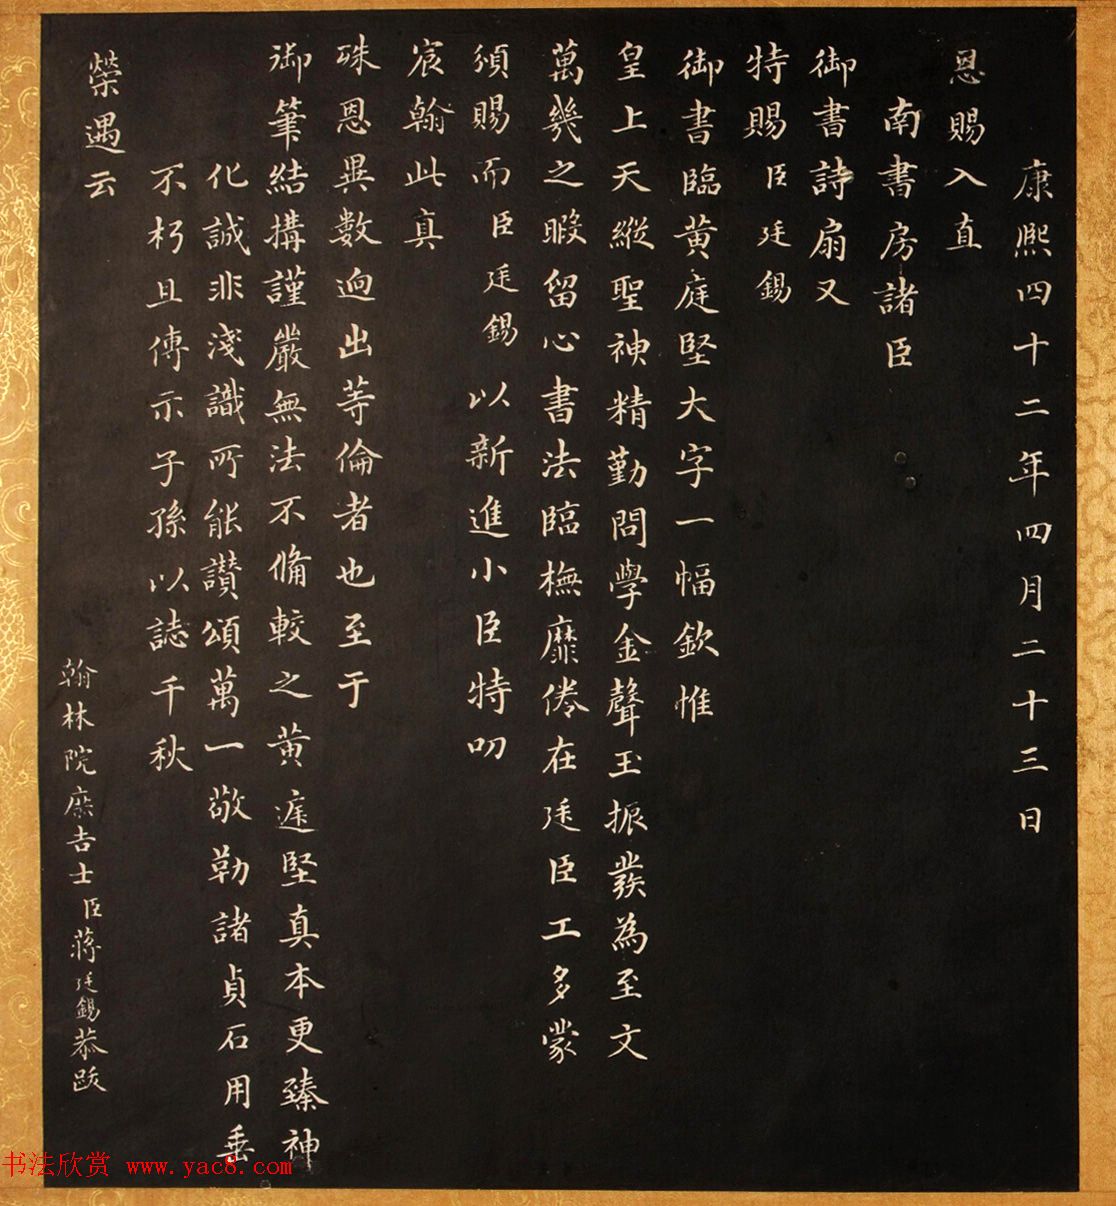 康熙四十二年四月二十三日
恩賜入直
南書房諸臣
御書詩扇又
特賜臣廷錫
御書臨黃庭堅大字一幅欽惟
皇上天縱聖神精勤問學金聲玉振發為至文
萬幾之暇留心書法臨橅靡倦在廷臣工多蒙
頒賜而臣廷錫以新進小臣特叨
宸翰此真
殊恩異數逈出等倫者也至于
御筆結搆謹嚴無法不備較之黃庭堅真本更臻神
化誠非淺識所能讚頌萬一敬勒諸貞石用垂
不朽且傳示子孫以誌千秋
榮遇云
翰林院庶吉士臣蔣廷錫恭跋
书法欣赏 www.yac8.com